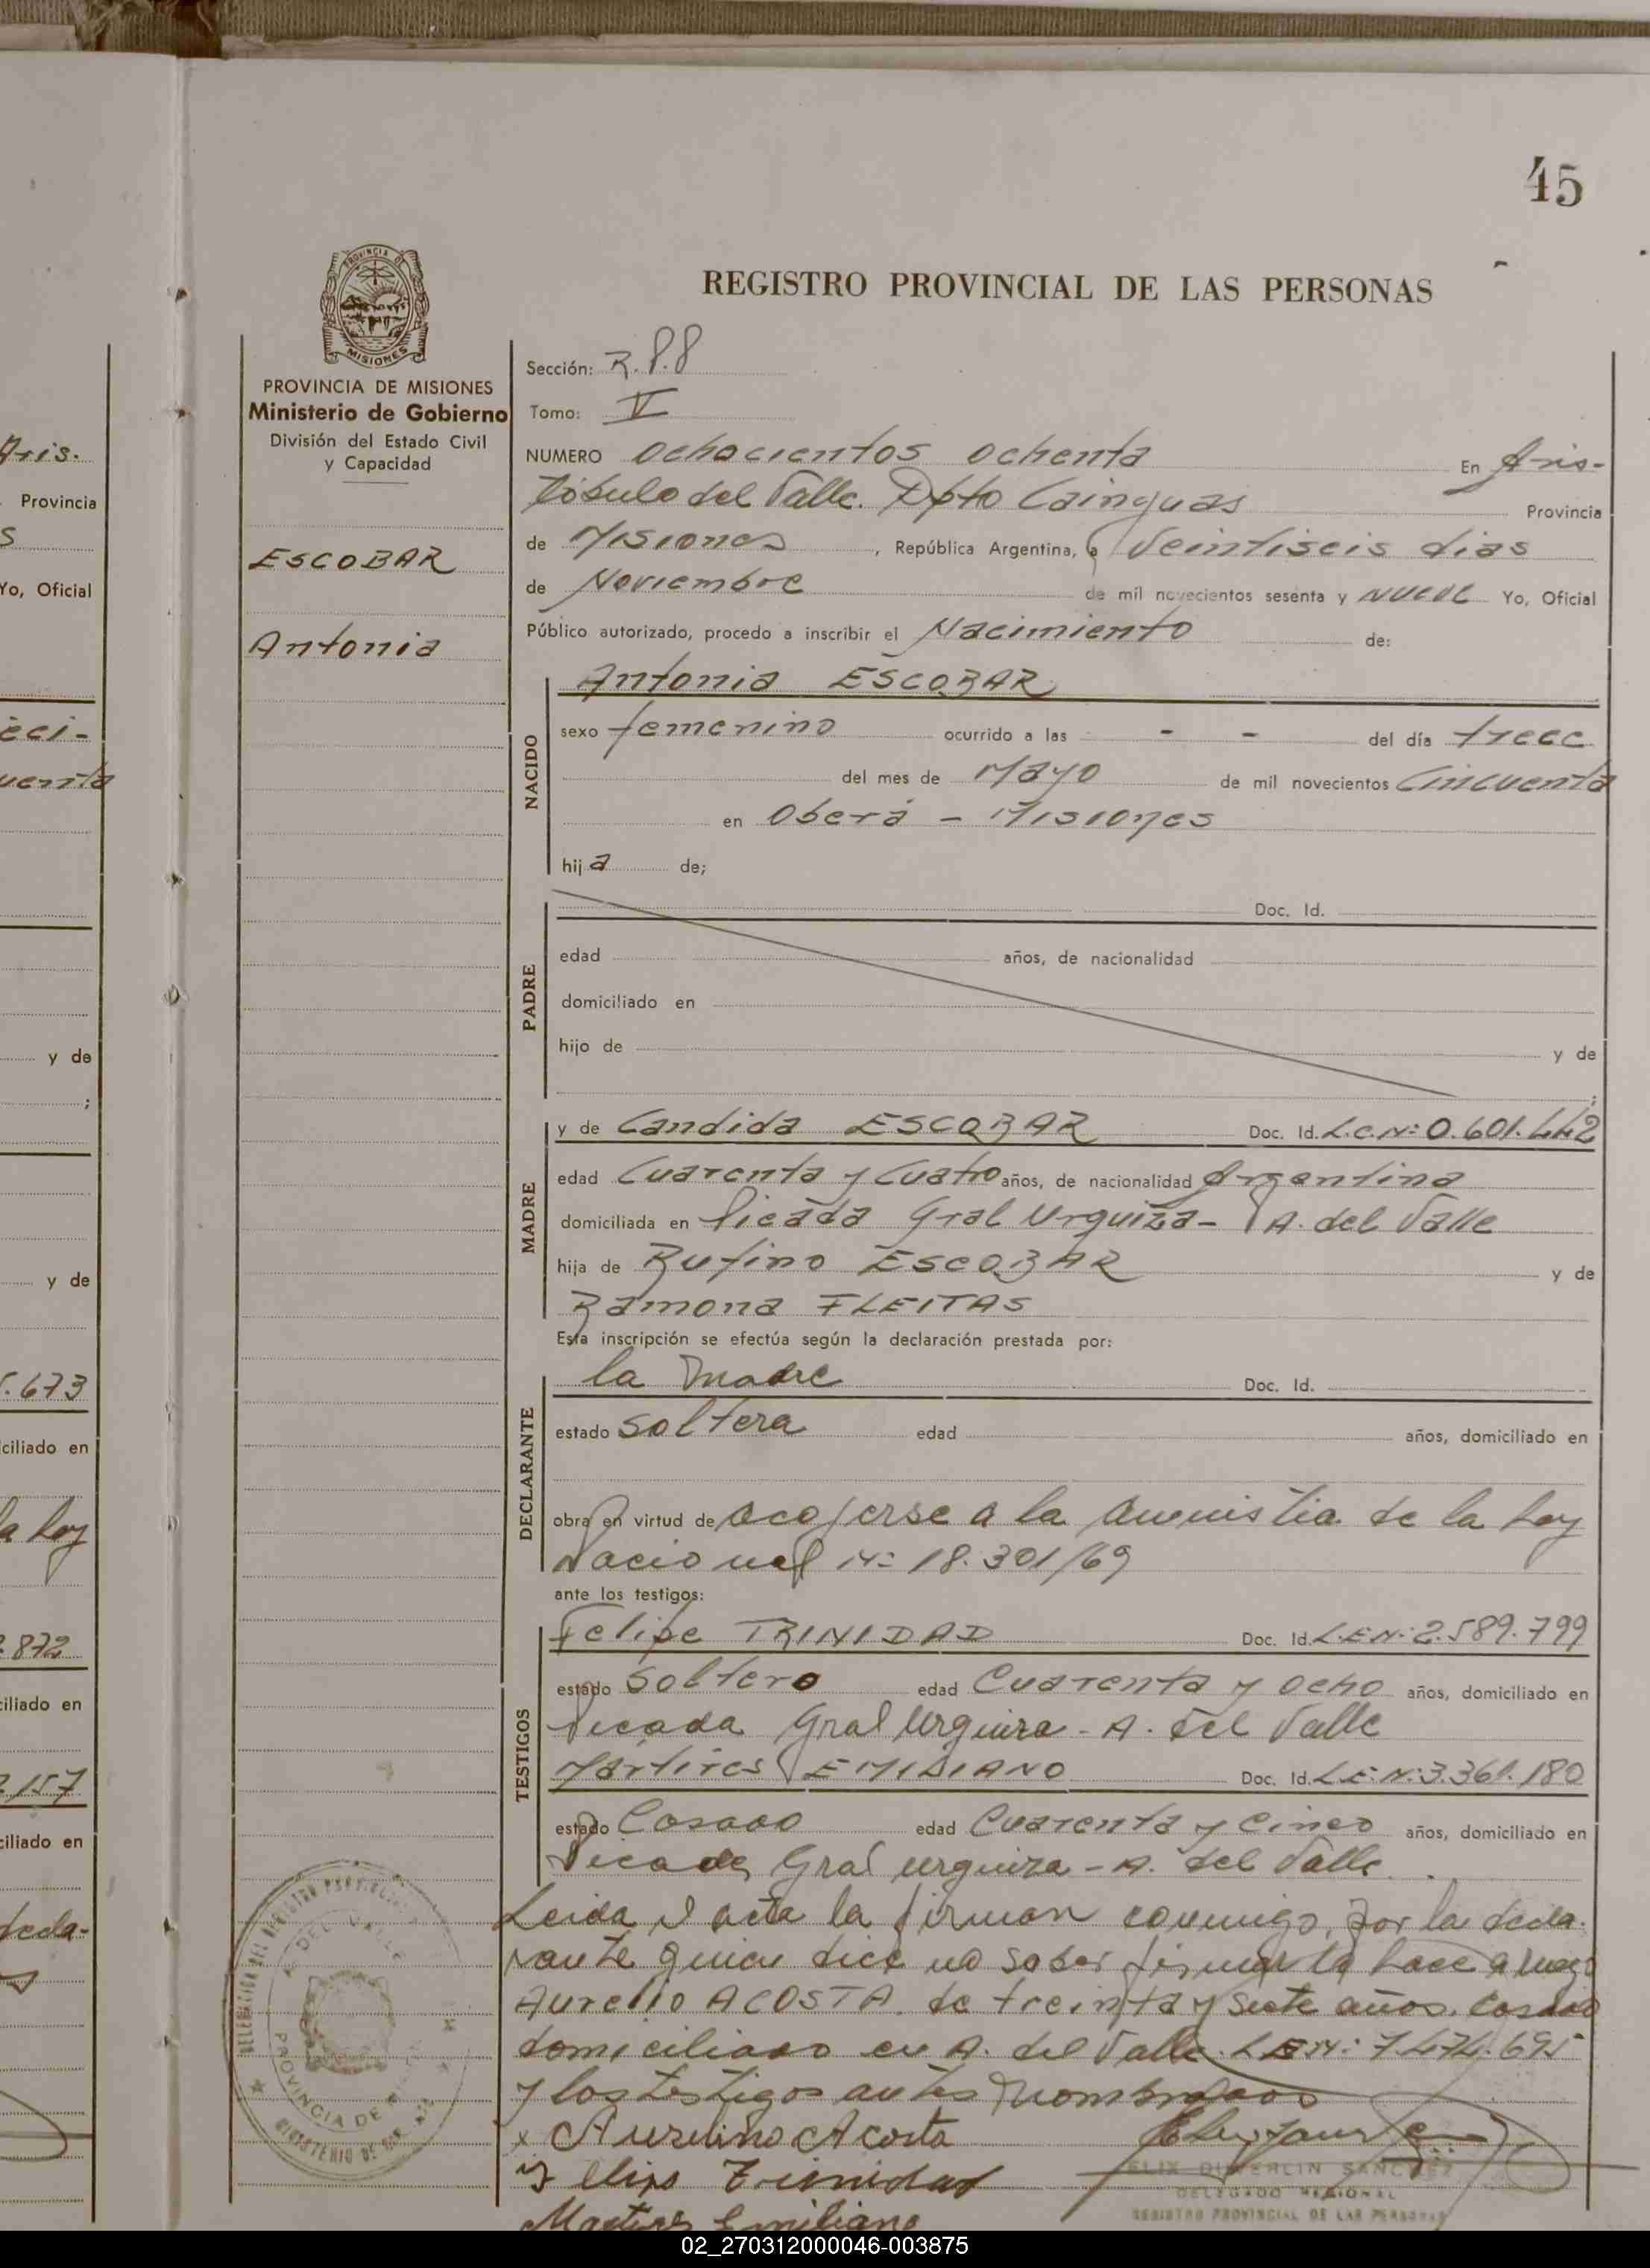 45
REGISTRO PROVINCIAL DE LAS PERSONAS
PROVINCIA DE MISIONES
Ministerio de Gobierno
División del Estado Civil
y Capacidad
ESCOBAR
Antonia
Sección: R.P.8
Tomo: V
NUMERO Ochocientos ochenta En Aris-
tóbulo del Valle. Dpto Cainguas Provincia
de Misiones, República Argentina, a Veintiseis dias
de Noviembre de mil novecientos sesenta y nueve Yo, Oficial
Público autorizado, procedo a inscribir el Nacimiento de:
NACIDO
Antonia ESCOBAR
sexo femenino ocurrido a las - - del día trece
del mes de Mayo de mil novecientos Cincuenta
en Oberá - Misiones
hija de;
PADRE
Doc. Id.
edad años, de nacionalidad
domiciliado en
hijo de y de
;
MADRE
y de Candida ESCOBAR Doc. Id. L.C.Nº: 0.601.442
edad Cuarenta y Cuatro años, de nacionalidad Argentina
domiciliada en Picada Gral Urquiza - A. del Valle
hija de Rufino ESCOBAR y de
Ramona FLEITAS
Esta inscripción se efectúa según la declaración prestada por:
DECLARANTE
la madre Doc. Id.
estado soltera edad años, domiciliado en
obra en virtud de acojerse a la amnistia de la Ley
Nacional Nº 18.301/69
ante los testigos:
TESTIGOS
Felipe TRINIDAD Doc. Id. L.E.Nº: 2.589.799
estado Soltero edad Cuarenta y Ocho años, domiciliado en
Picada Gral Urquiza - A. del Valle
Martires EMILIANO Doc. Id. L.E.Nº: 3.361.180
estado Casado edad Cuarenta y Cinco años, domiciliado en
Picada Gral Urquiza - A. del Valle
Leida el acta la firman conmigo, por la decla-
rante quien dice no saber firmar lo hace a ruego
Aurelio ACOSTA. de treinta y siete años. casado
domiciliado en A. del Valle. L.E.Nº: 7.474.695
y los testigos antes nombrados
x Aurelino Acosta
Trinidad
Martires Emiliano
FELIX SANCHEZ
DELEGADO REGIONAL
REGISTRO PROVINCIAL DE LAS PERSONAS
02_270312000046-003875